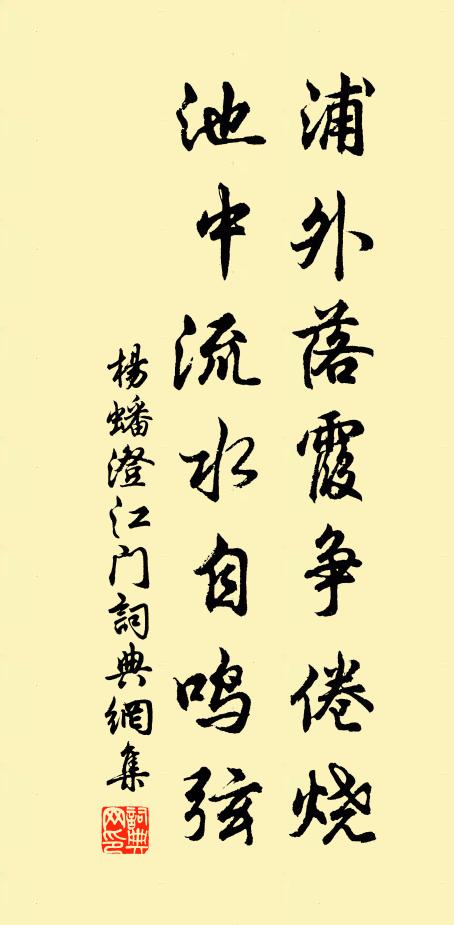 浦外落霞争倦烧
池中流水自鸣弦
杨蟠澄江门词典網集
詞典網印